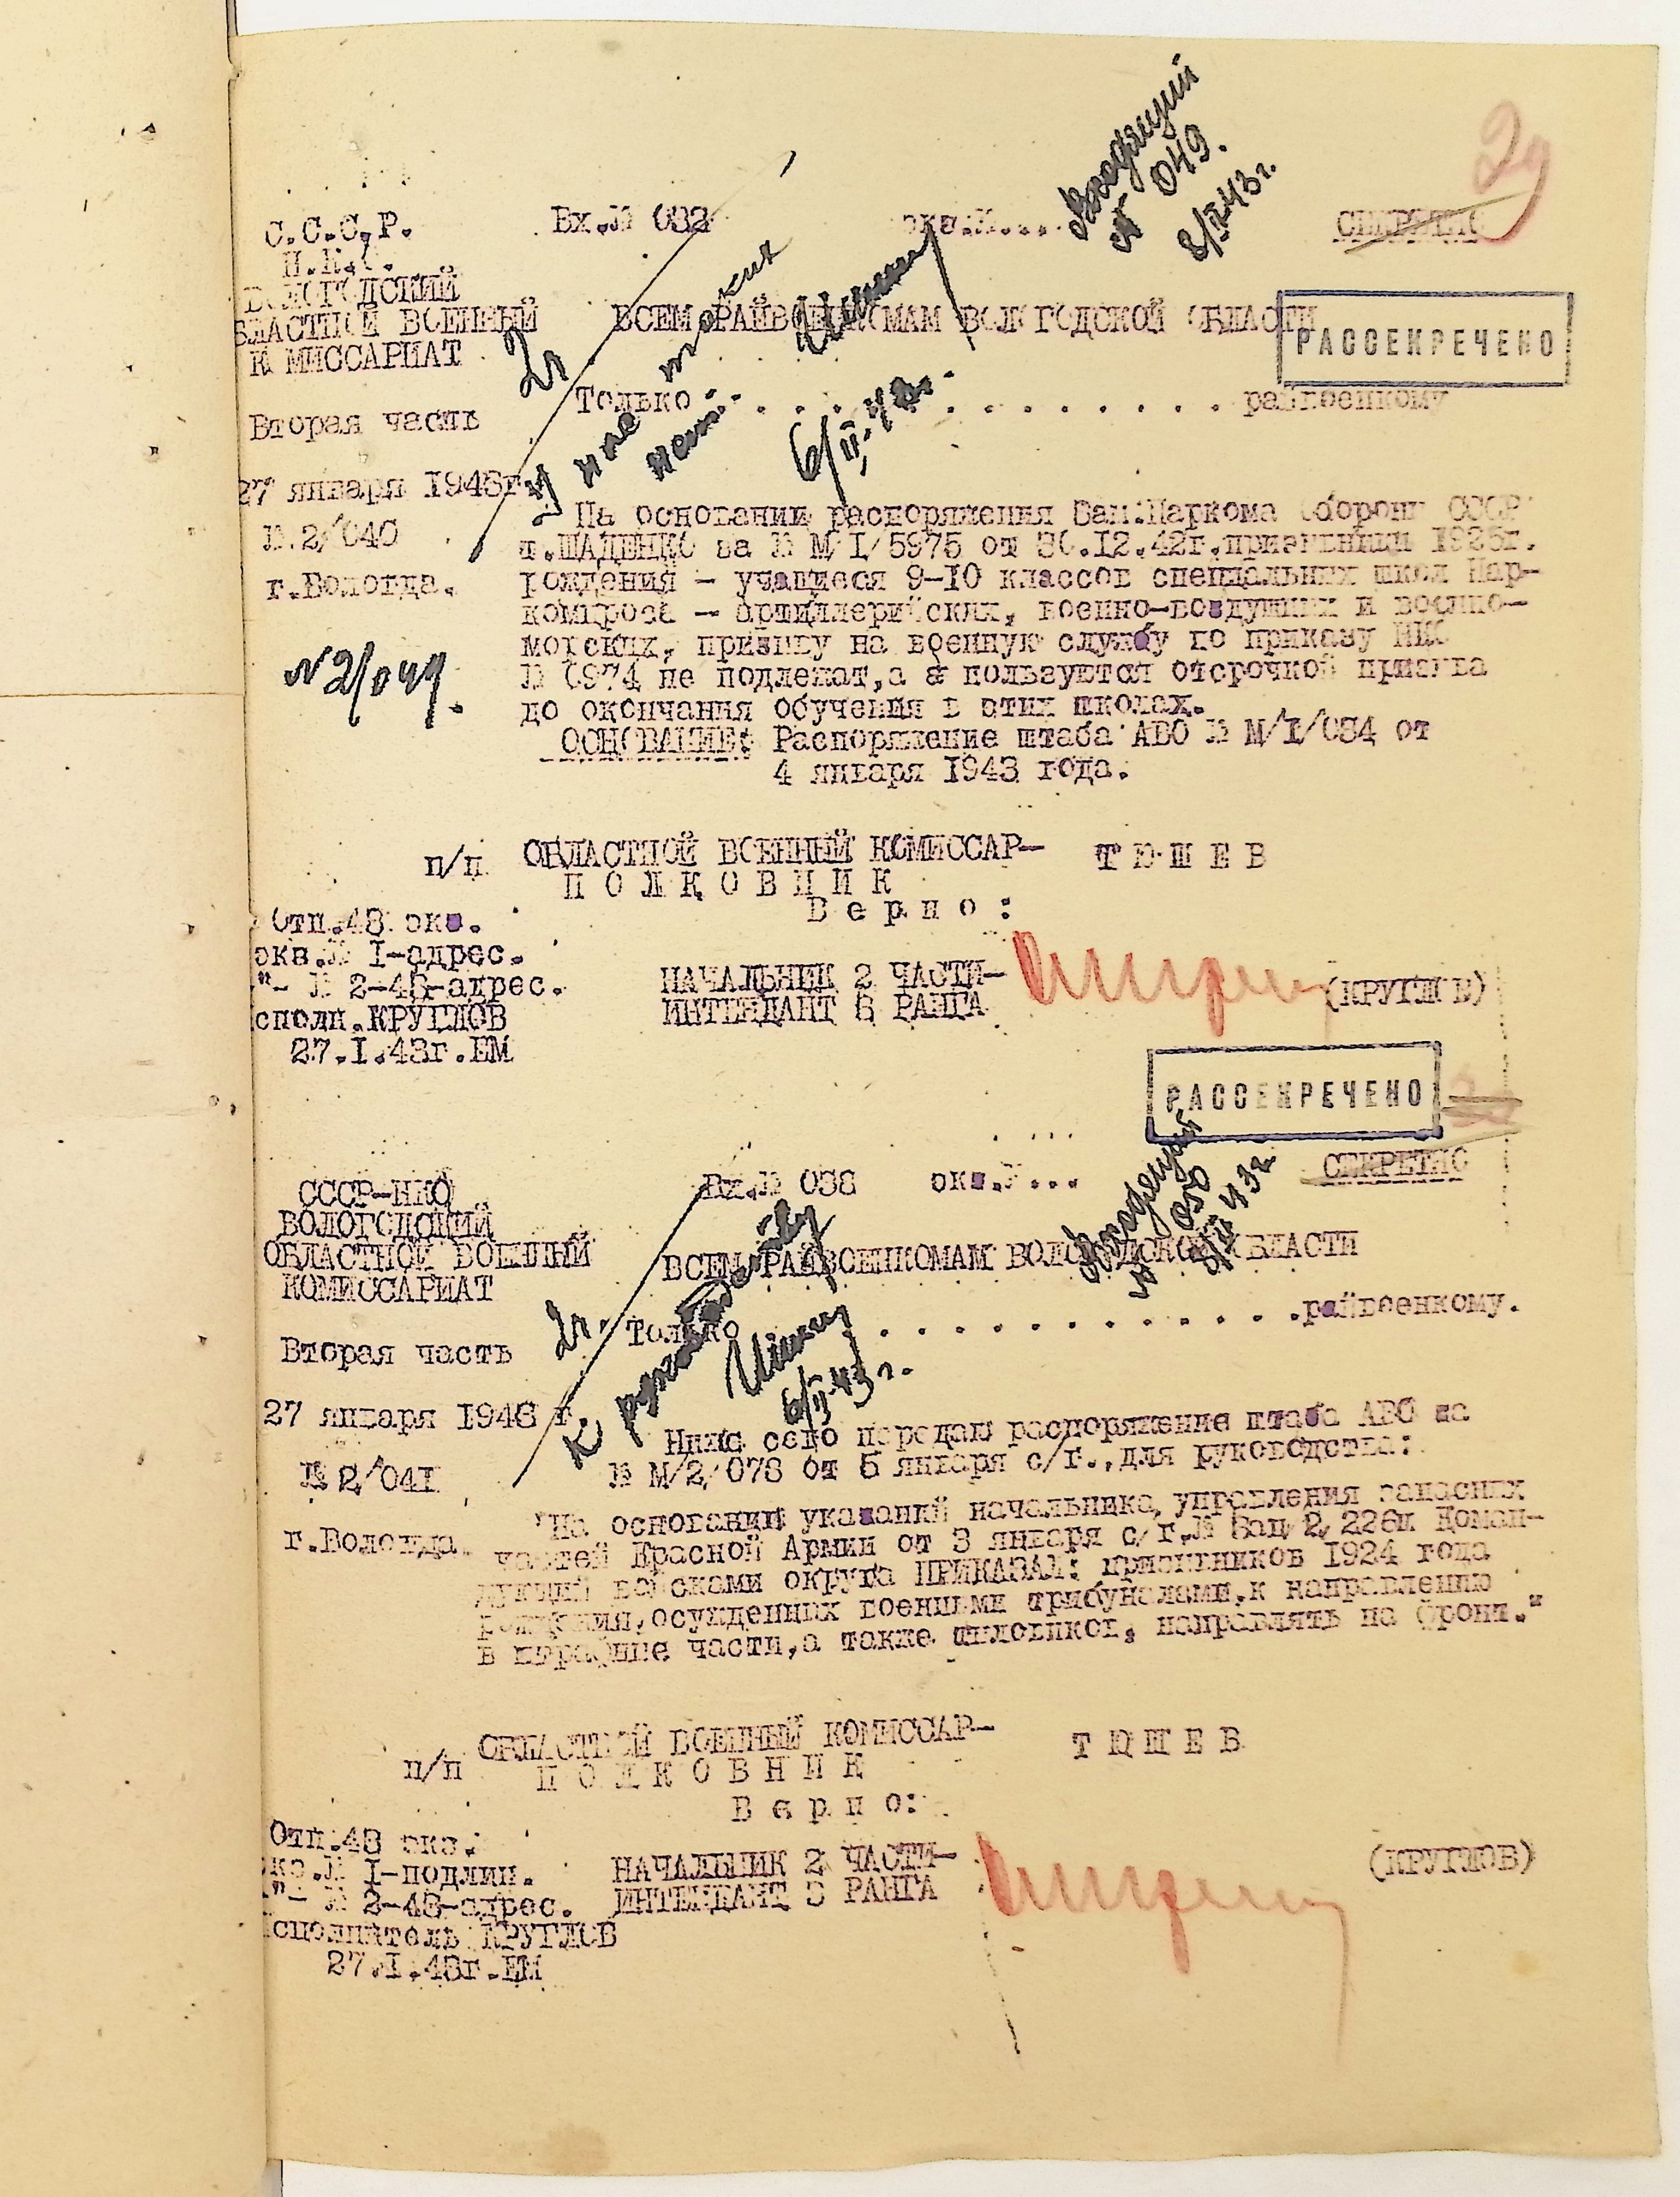 29
Входящий
№ 049.
8/II 43 г.
С.С.С.Р.
Вх.№ 032
экз.№....
СЕКРЕТНО
Н.К.О.
ВОЛОГОДСКИЙ
ОБЛАСТНОЙ ВОЕННЫЙ
КОМИССАРИАТ
ВСЕМ РАЙВОЕНКОМАМ ВОЛОГОДСКОЙ ОБЛАСТИ
РАССЕКРЕЧЕНО
2ч
У мне таких
нет.
6/II-43г.
Только . . . . . . . . . . . . райвоенкому
Вторая часть
27 января 1943г.
№.2/040
г.Вологда.
№2/049.
На основании распоряжения Зам.Наркома Обороны СССР
т.ЩАДЕНКО за № М/1/5975 от 30.12.42г.призывники 1925г.
рождения – учащиеся 9-10 классов специальных школ Нар-
компроса – артиллерийских, военно-воздушных и военно-
морских, призыву на военную службу по приказу НКО
№ 0974 не подлежат,а а пользуются отсрочкой призыва
до окончания обучения в этих школах.
ОСНОВАНИЕ: Распоряжение штаба АВО № М/1/034 от
4 января 1943 года.
п/п ОБЛАСТНОЙ ВОЕННЫЙ КОМИССАР- Т Ю Ш Е В
П О Л К О В Н И К
В е р н о :
Отп.43 экз.
экз.№ 1-адрес.
"- № 2-43-адрес.
сполн.КРУГЛОВ
27.1.43г.ЕМ
НАЧАЛЬНИК 2 ЧАСТИ-
ИНТЕНДАНТ 3 РАНГА
(КРУГЛОВ)
РАССЕКРЕЧЕНО
СЕКРЕТНО
СССР-НКО
Вх.№ 038
экз.№...
Входящий
№ 050
8/II 43г
ВОЛОГОДСКИЙ
ОБЛАСТНОЙ ВОЕННЫЙ
КОМИССАРИАТ
ВСЕМ РАЙВОЕНКОМАМ ВОЛОГОДСКОЙ ОБЛАСТИ
2ч.
К руководству
6/II-43 г.
Только . . . . . . . . . . . . .райвоенкому.
Вторая часть
27 января 1943 г.
№ 2/041
г.Вологда.
Ниже сего передаю распоряжение штаба АВО за
№ М/2/078 от 5 января с/г.,для руководства:
"На основании указаний начальника управления запасных
частей Красной Армии от 3 января с/г.№ Зап/2/226ц Коман-
дующий войсками округа ПРИКАЗАЛ: призывников 1924 года
рождения,осужденных военными трибуналами,к направлению
в штрафные части,а также направлять на фронт."
п/п ОБЛАСТНОЙ ВОЕННЫЙ КОМИССАР- Т Ю Ш Е В
П О Л К О В Н И К
В е р н о:
Отп.43 экз.
кз.№ 1-подлин.
"- № 2-43-адрес.
сполнитель КРУГЛОВ
27.1.43г.ЕМ
НАЧАЛЬНИК 2 ЧАСТИ-
ИНТЕНДАНТ 3 РАНГА
(КРУГЛОВ)